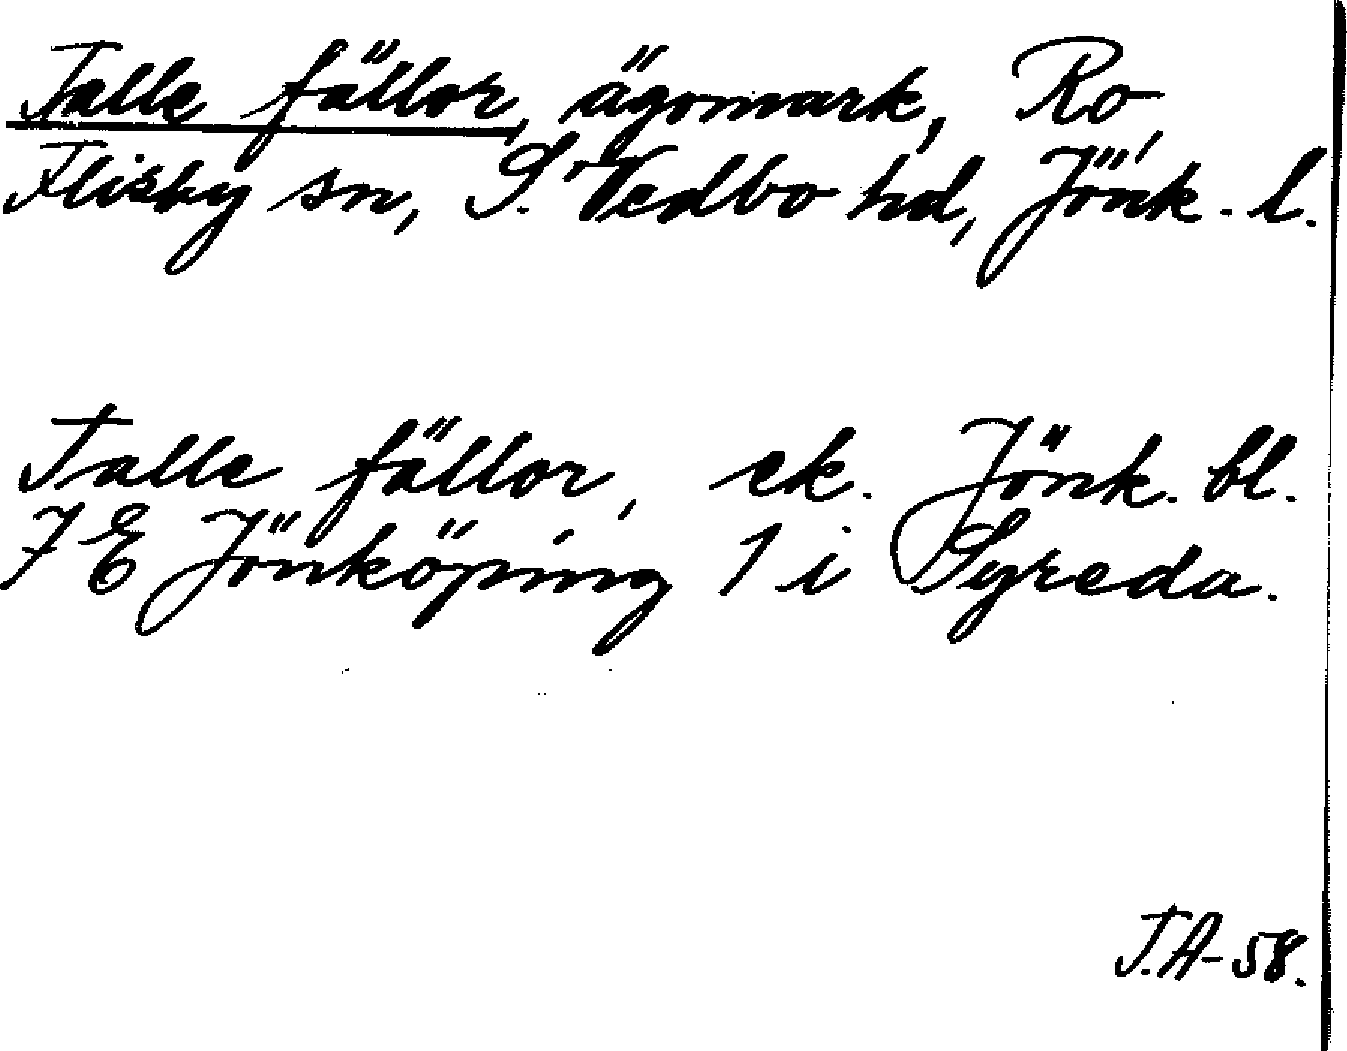 Talle fällor, ägomark, Ro,
Flisby sn, S. Vedbo hd, Jönk. l.
Talle fällor, ek. Jönk. bl.
7 E Jönköping 1 i Syreda.
T.A-58.